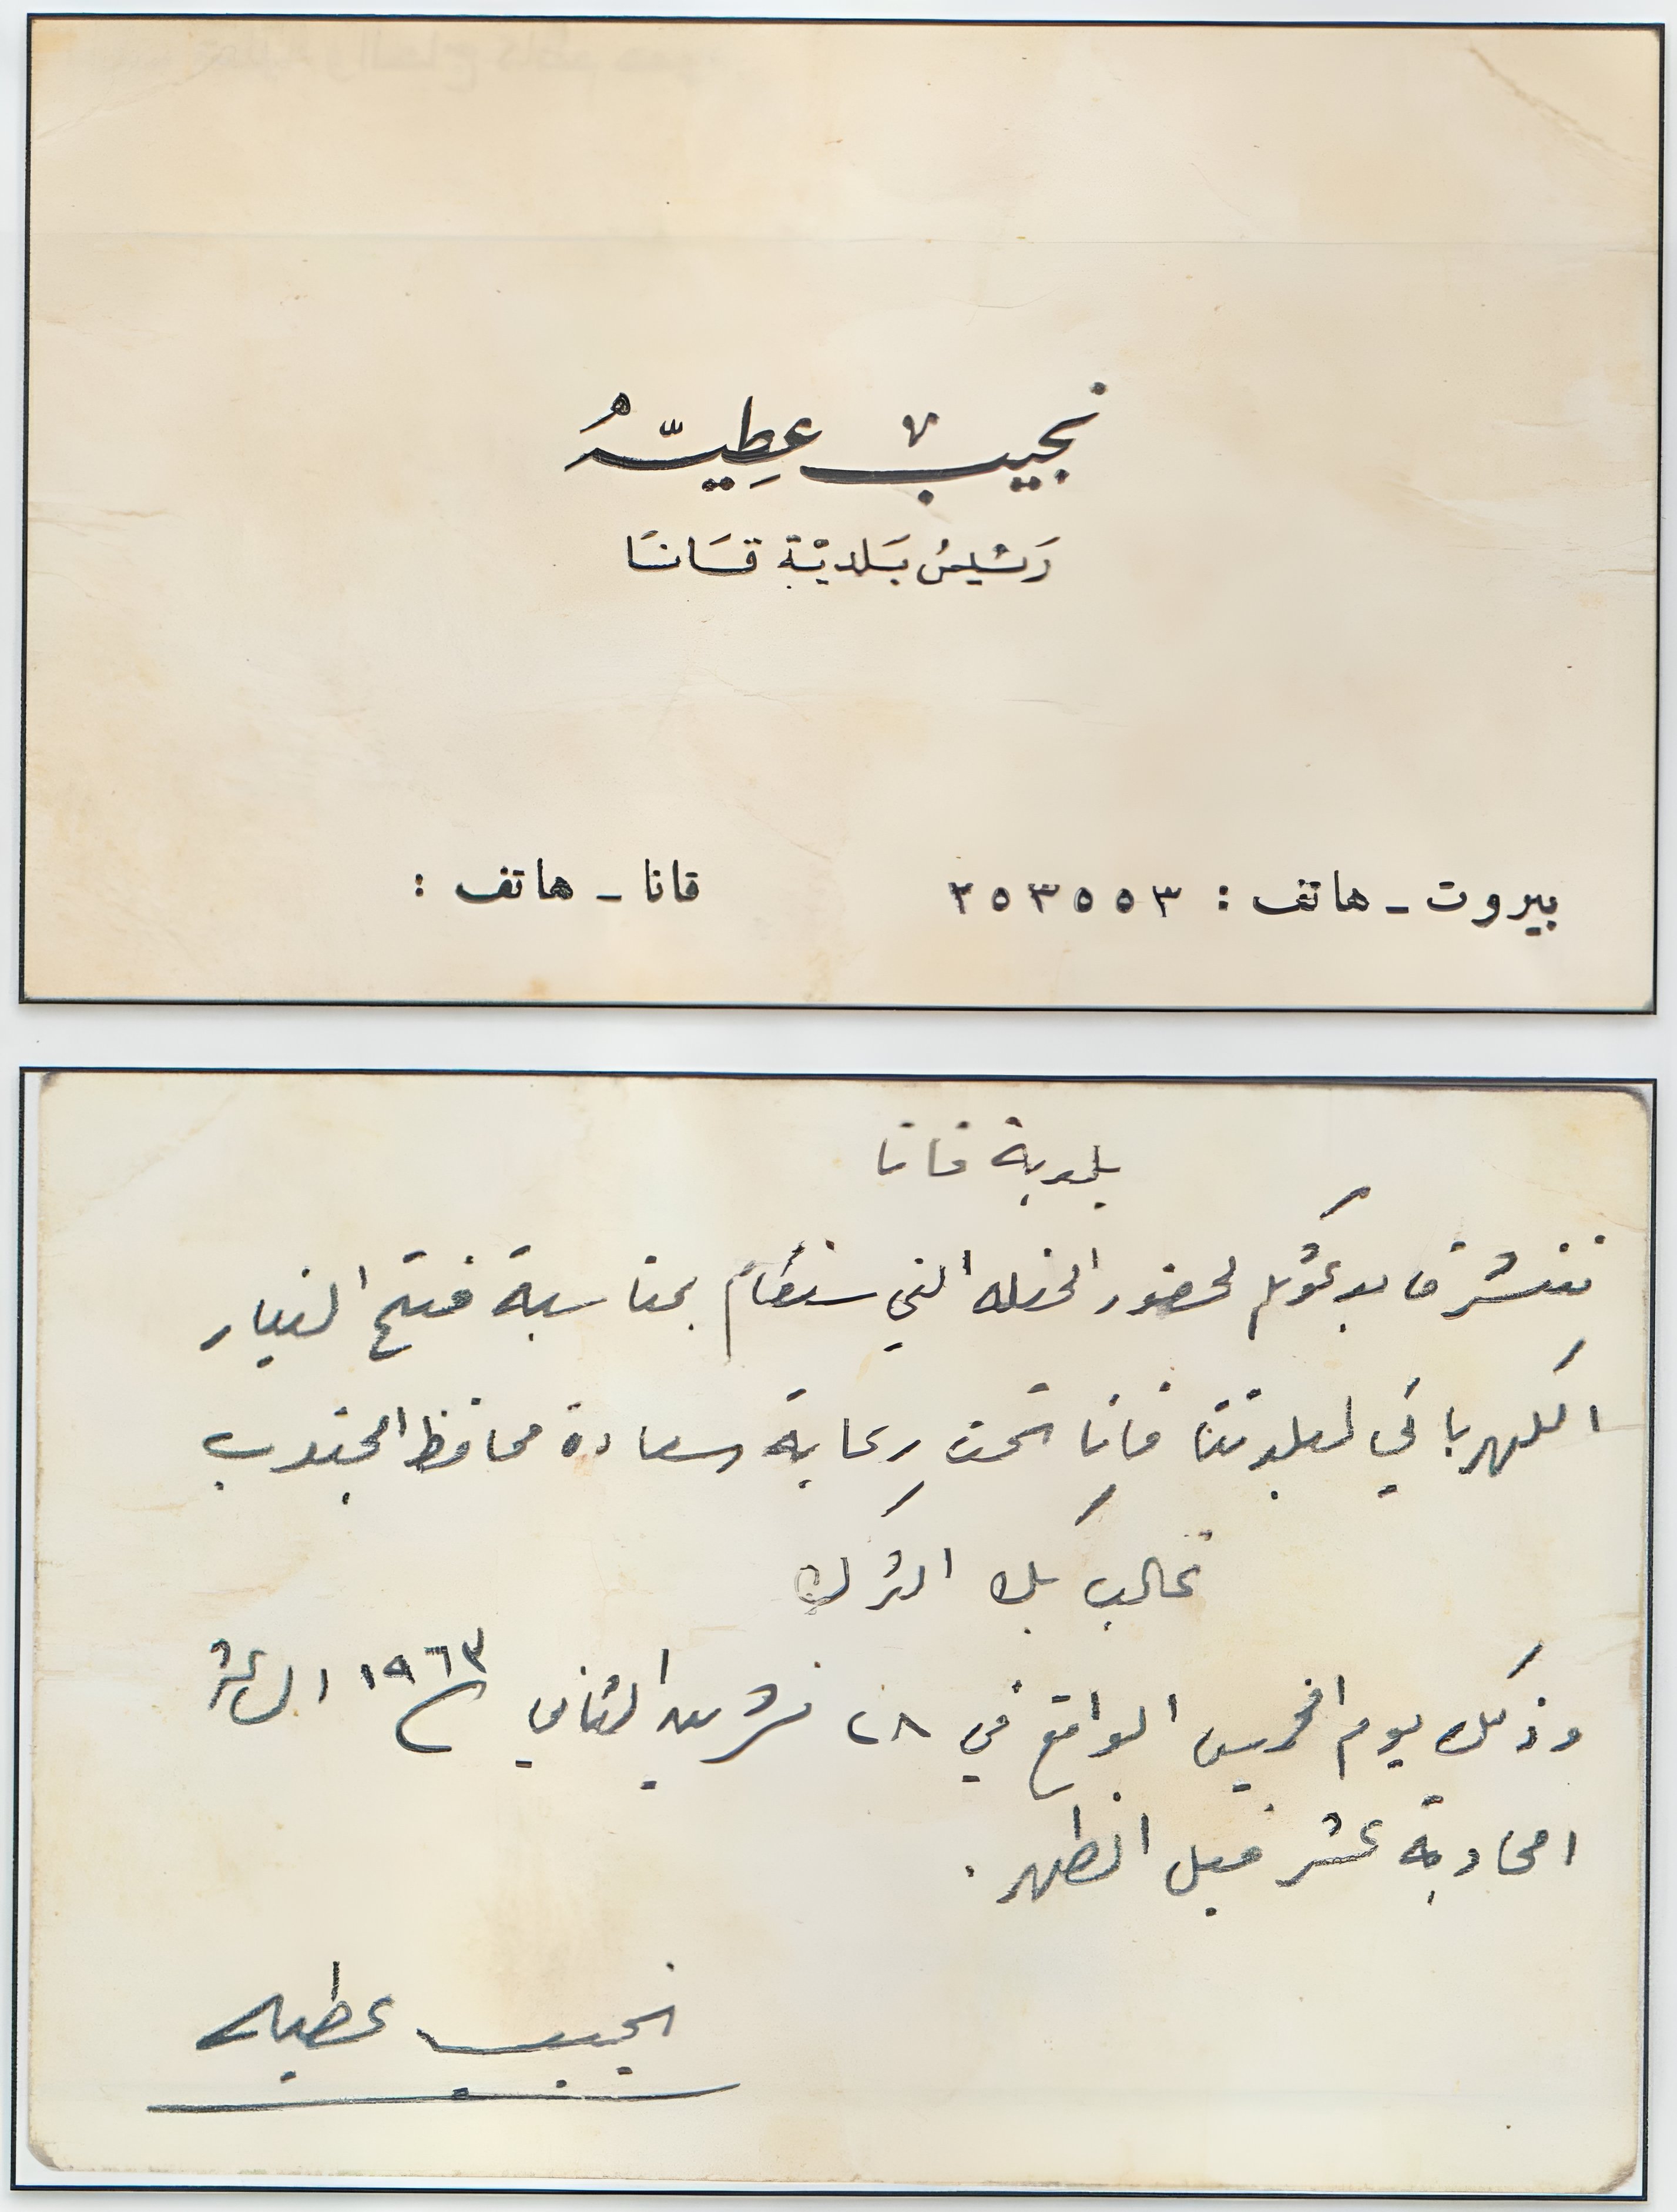 نجيب عطيّه
رَئيسُ بَلديّة قَانَا
بيروت - هاتف : ٢٥٣٥٥٣
قانا - هاتف :
بلدية قانا
نتشرف بدعوتكم لحضور الحفله التي ستقام بمناسبة فتح التيار
الكهربائي لبلدتنا قانا تحت رعاية سعادة محافظ الجنوب
غالب بك الترك
وذلك يوم الخميس الواقع في ٢٨ تشرين الثاني ١٩٦٣ الساعة
الحادية عشر قبل الظهر .
نجيب عطيه